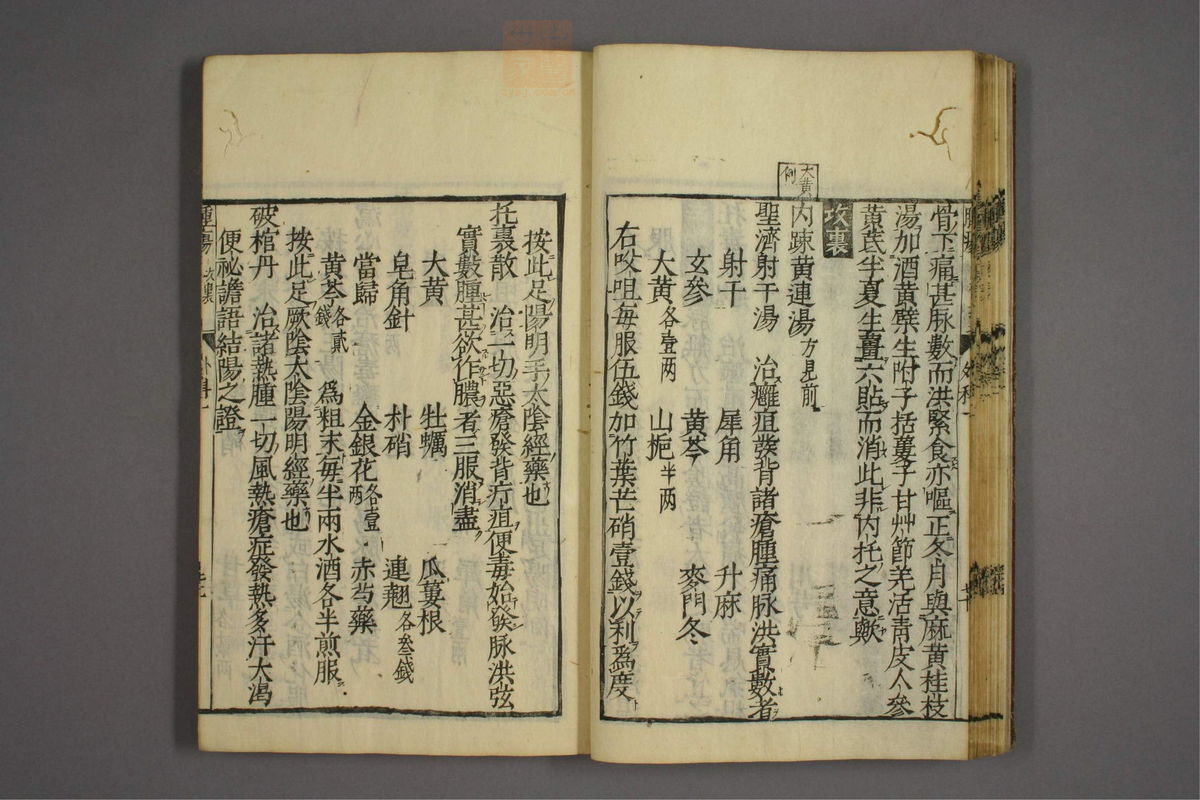 骨下痛甚脉數而洪緊食亦嘔正冬月與麻黃桂枝
湯加酒黃蘗生附子括蔞子甘艸節羌活青皮人參
黃芪半夏生薑六貼而消此非內托之意歟
攻裏
大黃例
內踈黃連湯方見前
聖濟射干湯 治癰疽發背諸瘡腫痛脉洪實數者
射干 犀角 升麻
玄參 黃芩 麥門冬
大黃各壹两 山梔半两
右㕮咀每服伍錢加竹葉芒硝壹錢以利爲度
按此足陽明手太陰經藥也
托裏散 治一切惡瘡發背疔疽便毒始發脉洪弦
實數腫甚欲作膿者三服消盡
大黃 牡蠣 瓜蔞根
皂角針 朴硝 連翹各叄錢
當歸 金銀花各壹两 赤芍藥
黃芩各貳錢 爲粗末每半兩水酒各半煎服
按此足厥陰太陰陽明經藥也
破棺丹 治諸熱腫一切風熱瘡症發熱多汗大渴
便祕譫語結陽之證
腫瘍 攻裏 外科一